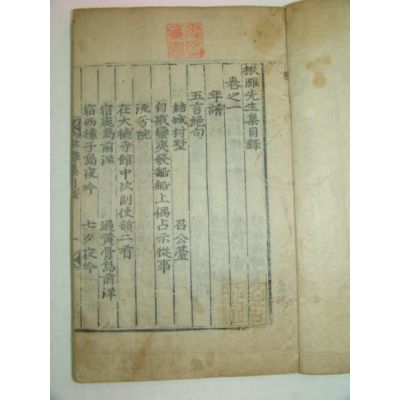 楸灘先生集目錄
卷之一
年譜
五言絶句
結城村墅 召公臺
發船船上偶占示從事
流芳院
在大德寺館中次副使韻二首
宿鹿島前洋 過黃骨島前洋
宿西獐子島夜吟 七夕夜吟